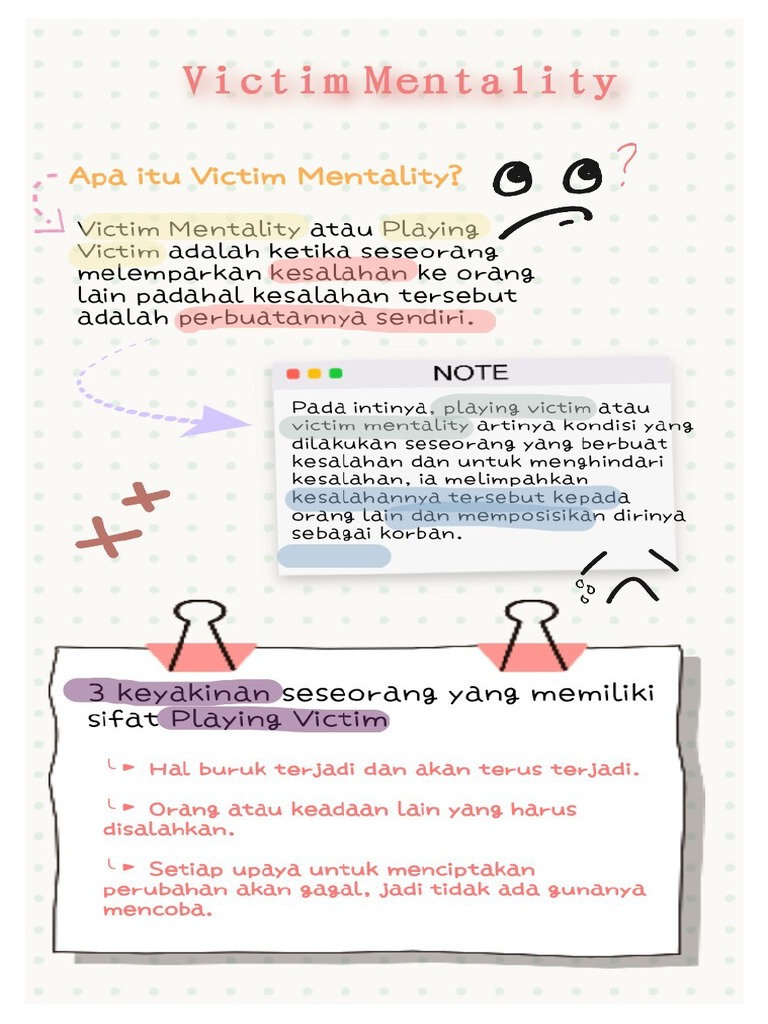 Victim Mentality
Apa itu Victim Mentality?
?
Victim Mentality atau Playing
Victim adalah ketika seseorang
melemparkan kesalahan ke orang
lain padahal kesalahan tersebut
adalah perbuatannya sendiri.
NOTE
Pada intinya, playing victim atau
victim mentality artinya kondisi yang
dilakukan seseorang yang berbuat
kesalahan dan untuk menghindari
kesalahan, ia melimpahkan
kesalahannya tersebut kepada
orang lain dan memposisikan dirinya
sebagai korban.
3 keyakinan seseorang yang memiliki
sifat Playing Victim
Hal buruk terjadi dan akan terus terjadi.
Orang atau keadaan lain yang harus
disalahkan.
Setiap upaya untuk menciptakan
perubahan akan gagal, jadi tidak ada gunanya
mencoba.